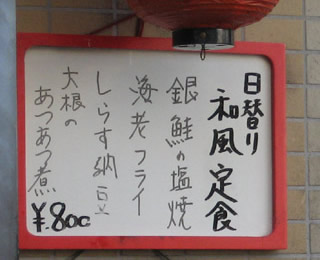 日替り
和風定食
銀鮭の塩焼
海老フライ
しらす納豆
大根の
あつあつ煮
¥.800